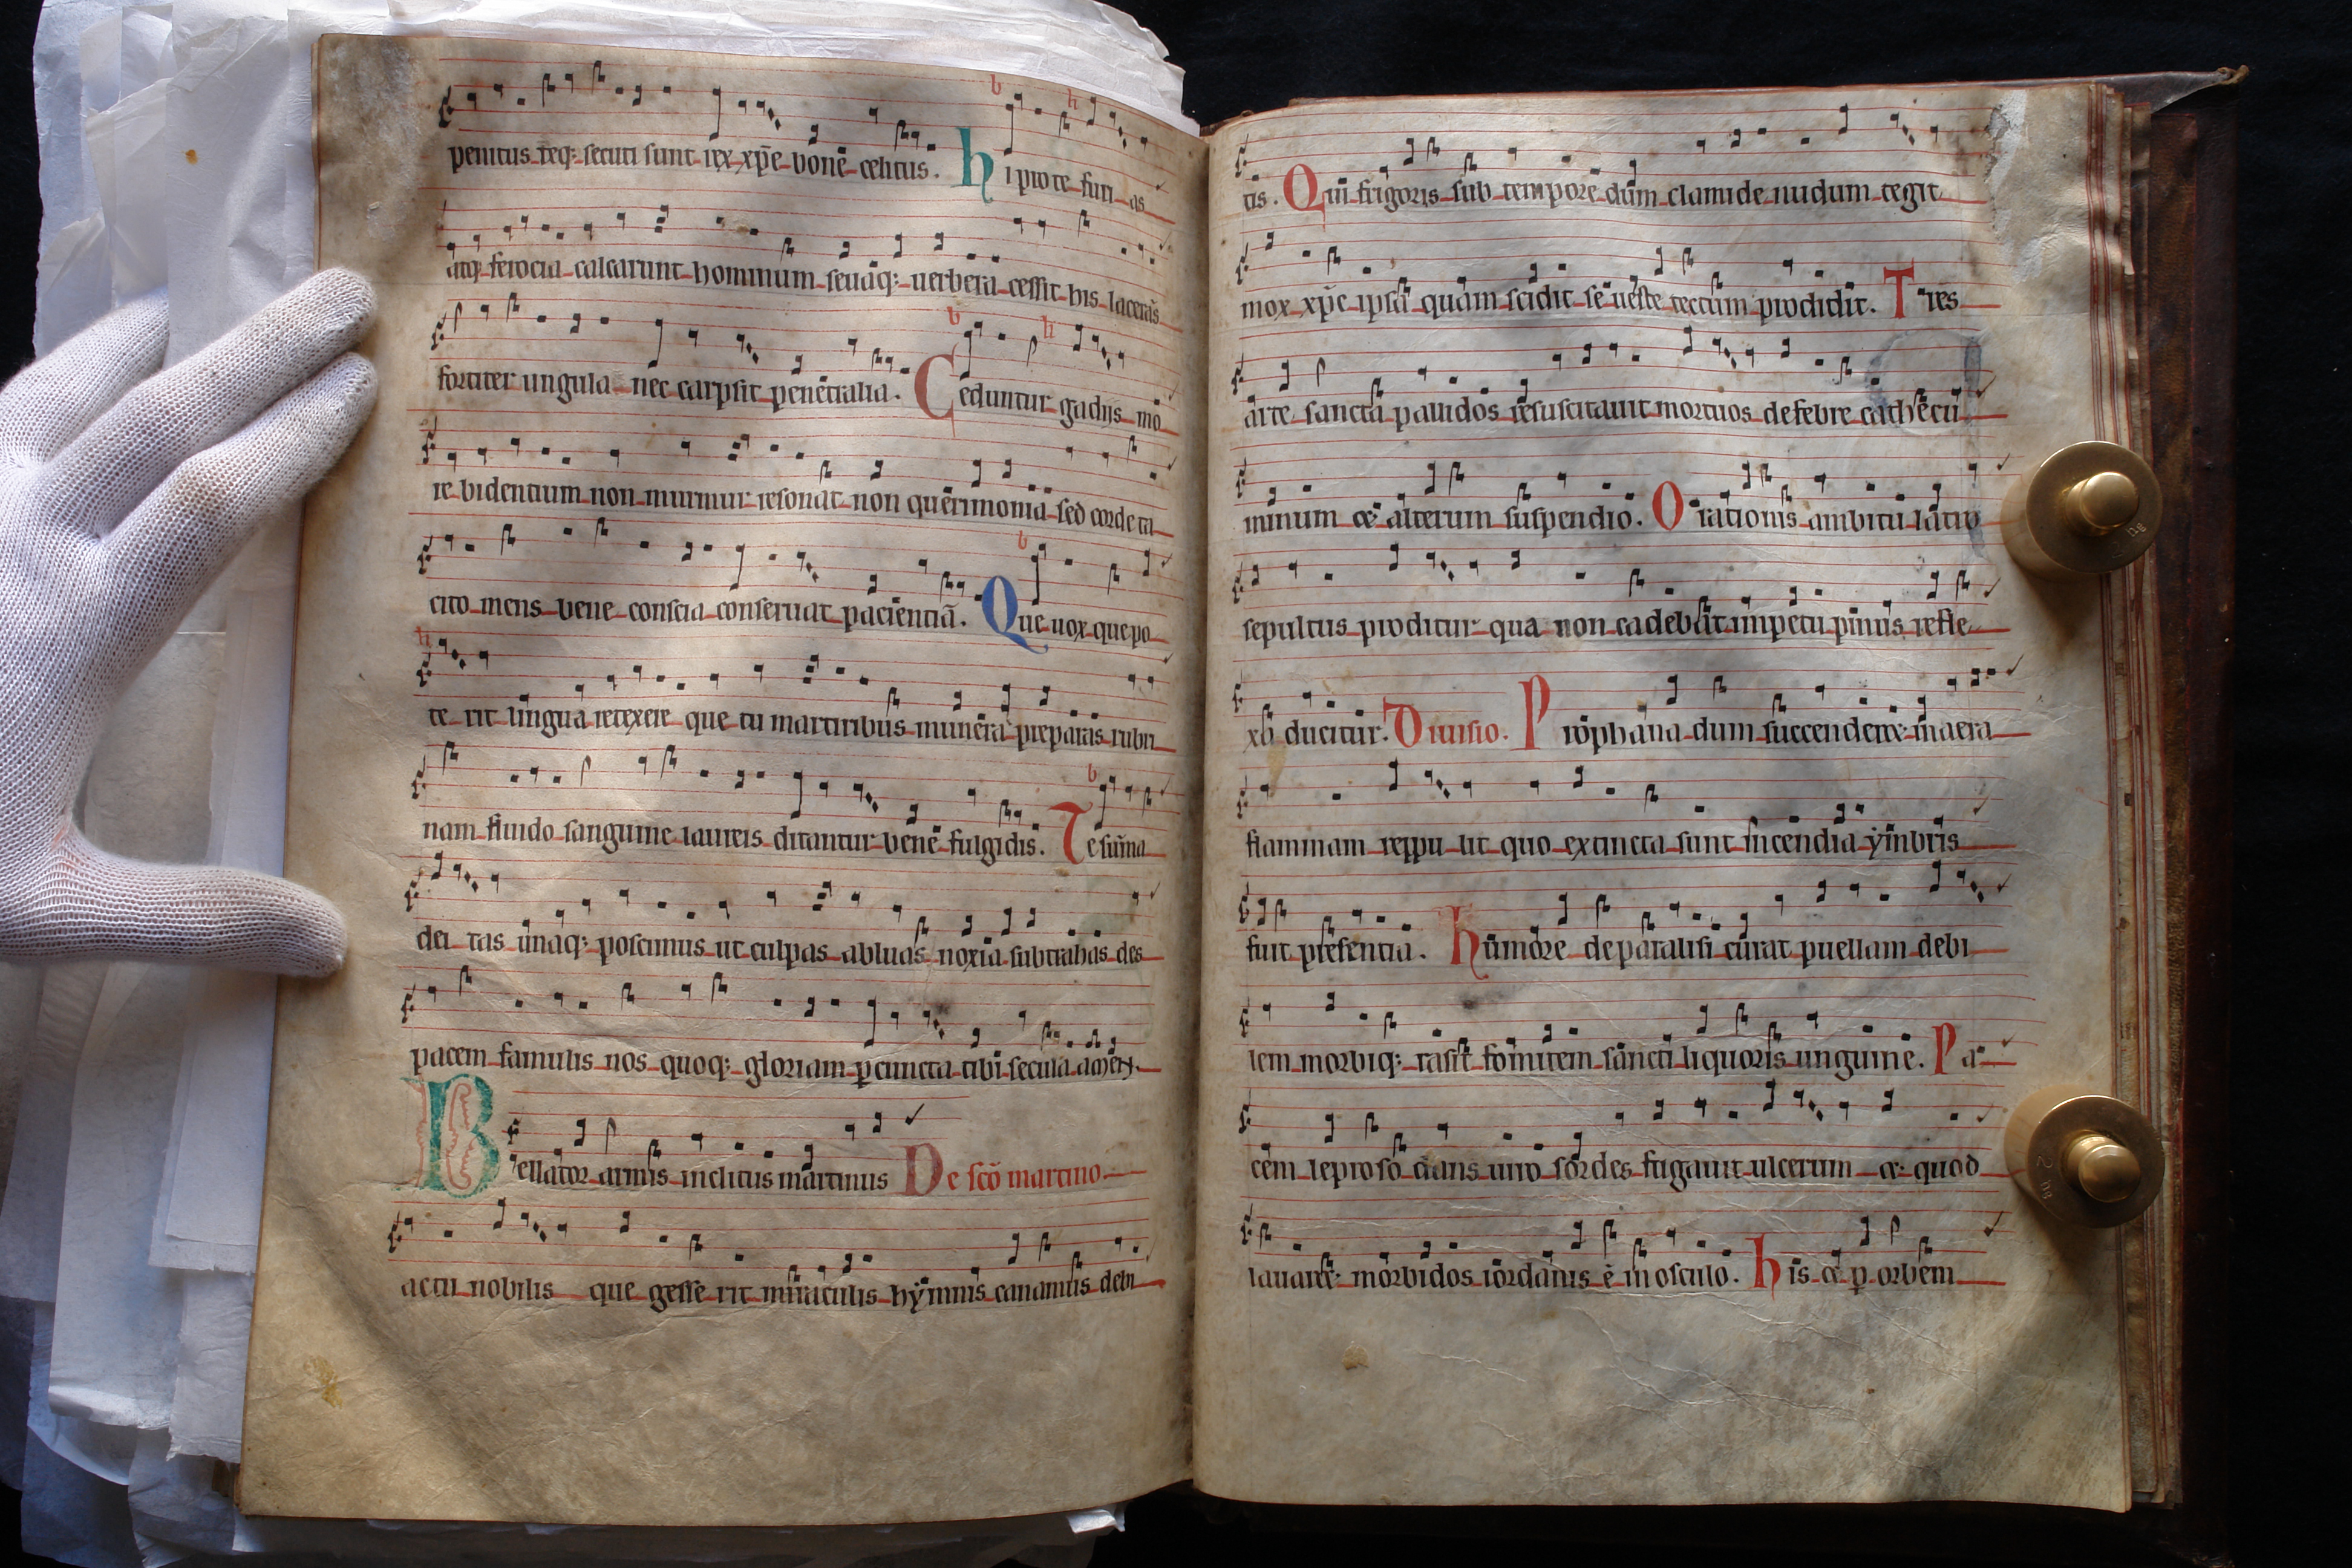 penitus teq; secuti sunt rex xp̄e bone celitus. hi pro te furi as
atq; ferocia calcarunt hominum seuaq; uerbera cessit his lacerās
fortiter ungula nec carpsit penetralia. Ceduntur gadijs mo
re bidentium non murmur resonat non querimonia sed corde ta
cito mens bene conscia conseruat pacientiā. Que uox que po
te rit lingua retexere que tu martiribus munera preparas rubri
nam fluido sanguine laureis ditantur bene fulgidis. Te sūma
dei tas unaq; poscimus ut culpas abluas noxia subtrahas des
pacem famulis nos quoq; gloriam p cuncta tibi secula amen.
Bellator armis inclitus martinus De scō martino.
actu nobilis que gesse rit miraculis hẏmnis canamus debi
tis. Qui frigoris sub tempore dum clamide nudum tegit
mox xp̄c ipsa quam scidit se ueste tectum prodidit. Tres
arte sancta pallidos resuscitauit mortuos de febre cathecu
minum et alterum suspendio. Orationis ambitu latro
sepultus proditur qua non cadebat impetu pinus refle
xb ducitur. Diuisio. Prophana dum succenderet macra
flammam reppu lit quo extincta sunt incendia ẏmbris
fuit presentia. humore de paralisi curat puellam debi
lem morbiq; rasit fomitem sancti liquoris unguine. Pa
cem leproso dans uno sordes fugauit ulcerum et quod
lauaret morbidos iordanis ē in osculo. his et p orbem